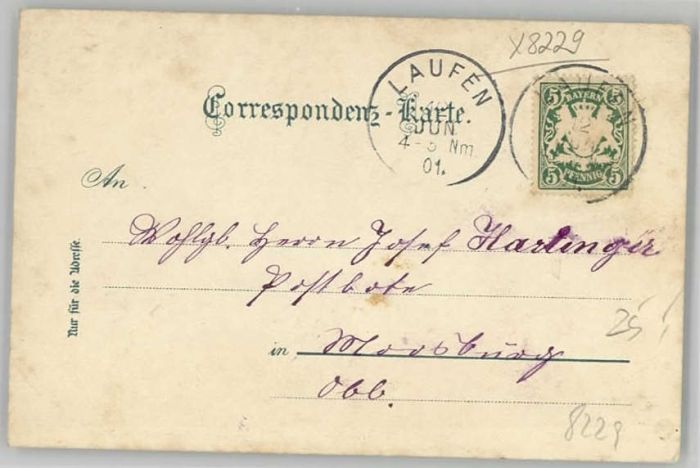 x8229
LAUFEN
JUN
4-5 Nm
01.
5 BAYERN 5
5 PFENNIG 5
Correspondenz-Karte.
An
Wohlgb. Herrn Josef Hartinger
Postbote
in Moosburg
Obb.
Nur für die Adresse.
25
8229